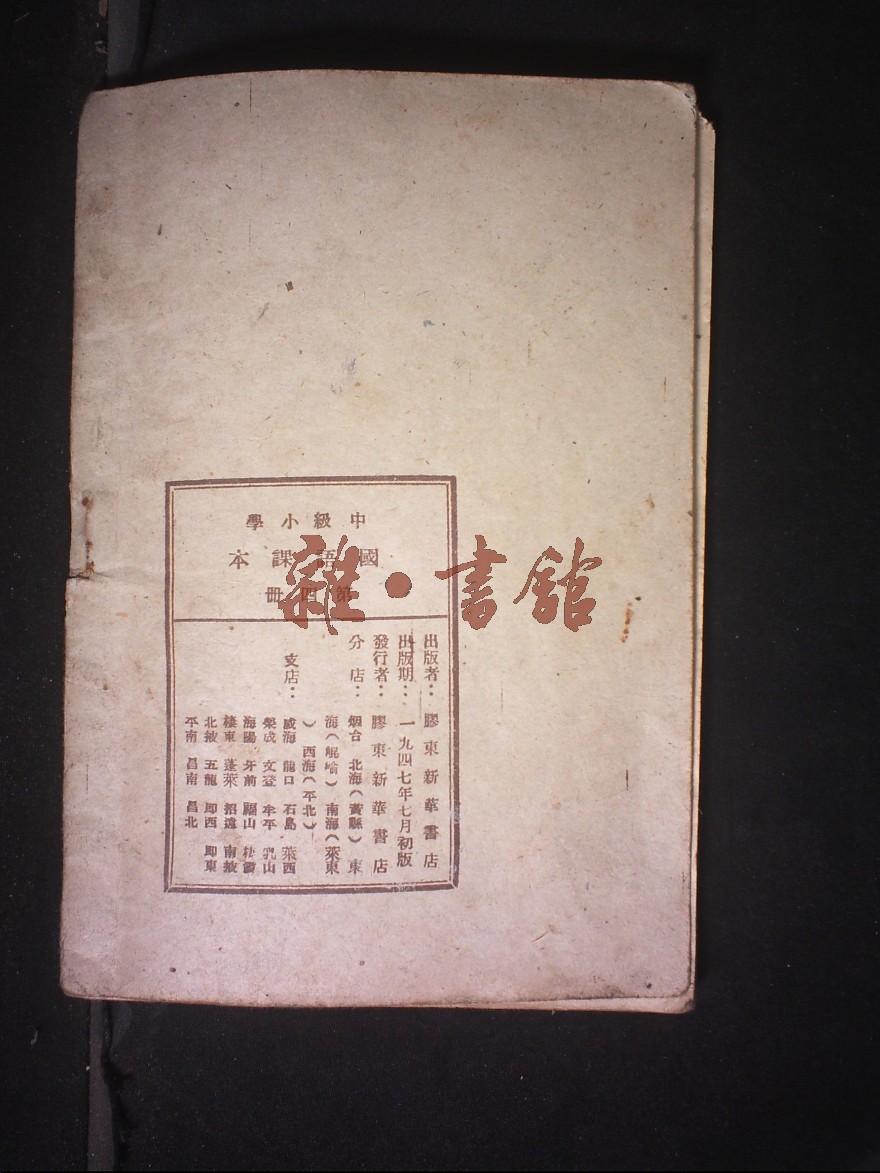 中級小學
國語課本
第四册
出版者：膠東新華書店
出版期：一九四七年七月初版
發行者：膠東新華書店
分店：烟台 北海（黃縣）東
海（崐嵛）南海（萊東
）西海（平北）
支店：威海 龍口 石島 萊西
榮成 文登 牟平 乳山
海陽 牙前 福山 棲霞
棲東 蓬萊 招遠 南掖
北掖 五龍 即西 即東
平南 昌南 昌北
雜·書館